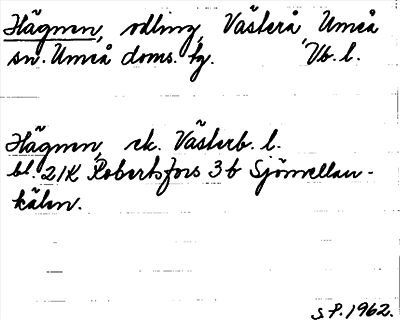 Hägnen, odling, Västerå, Umeå
sn. Umeå doms. tg. Vb. l.
Hägnen, ek. Västerb. l.
bl. 21K Robertsfors 3b Sjömellan-
kälen.
S.P. 1962.